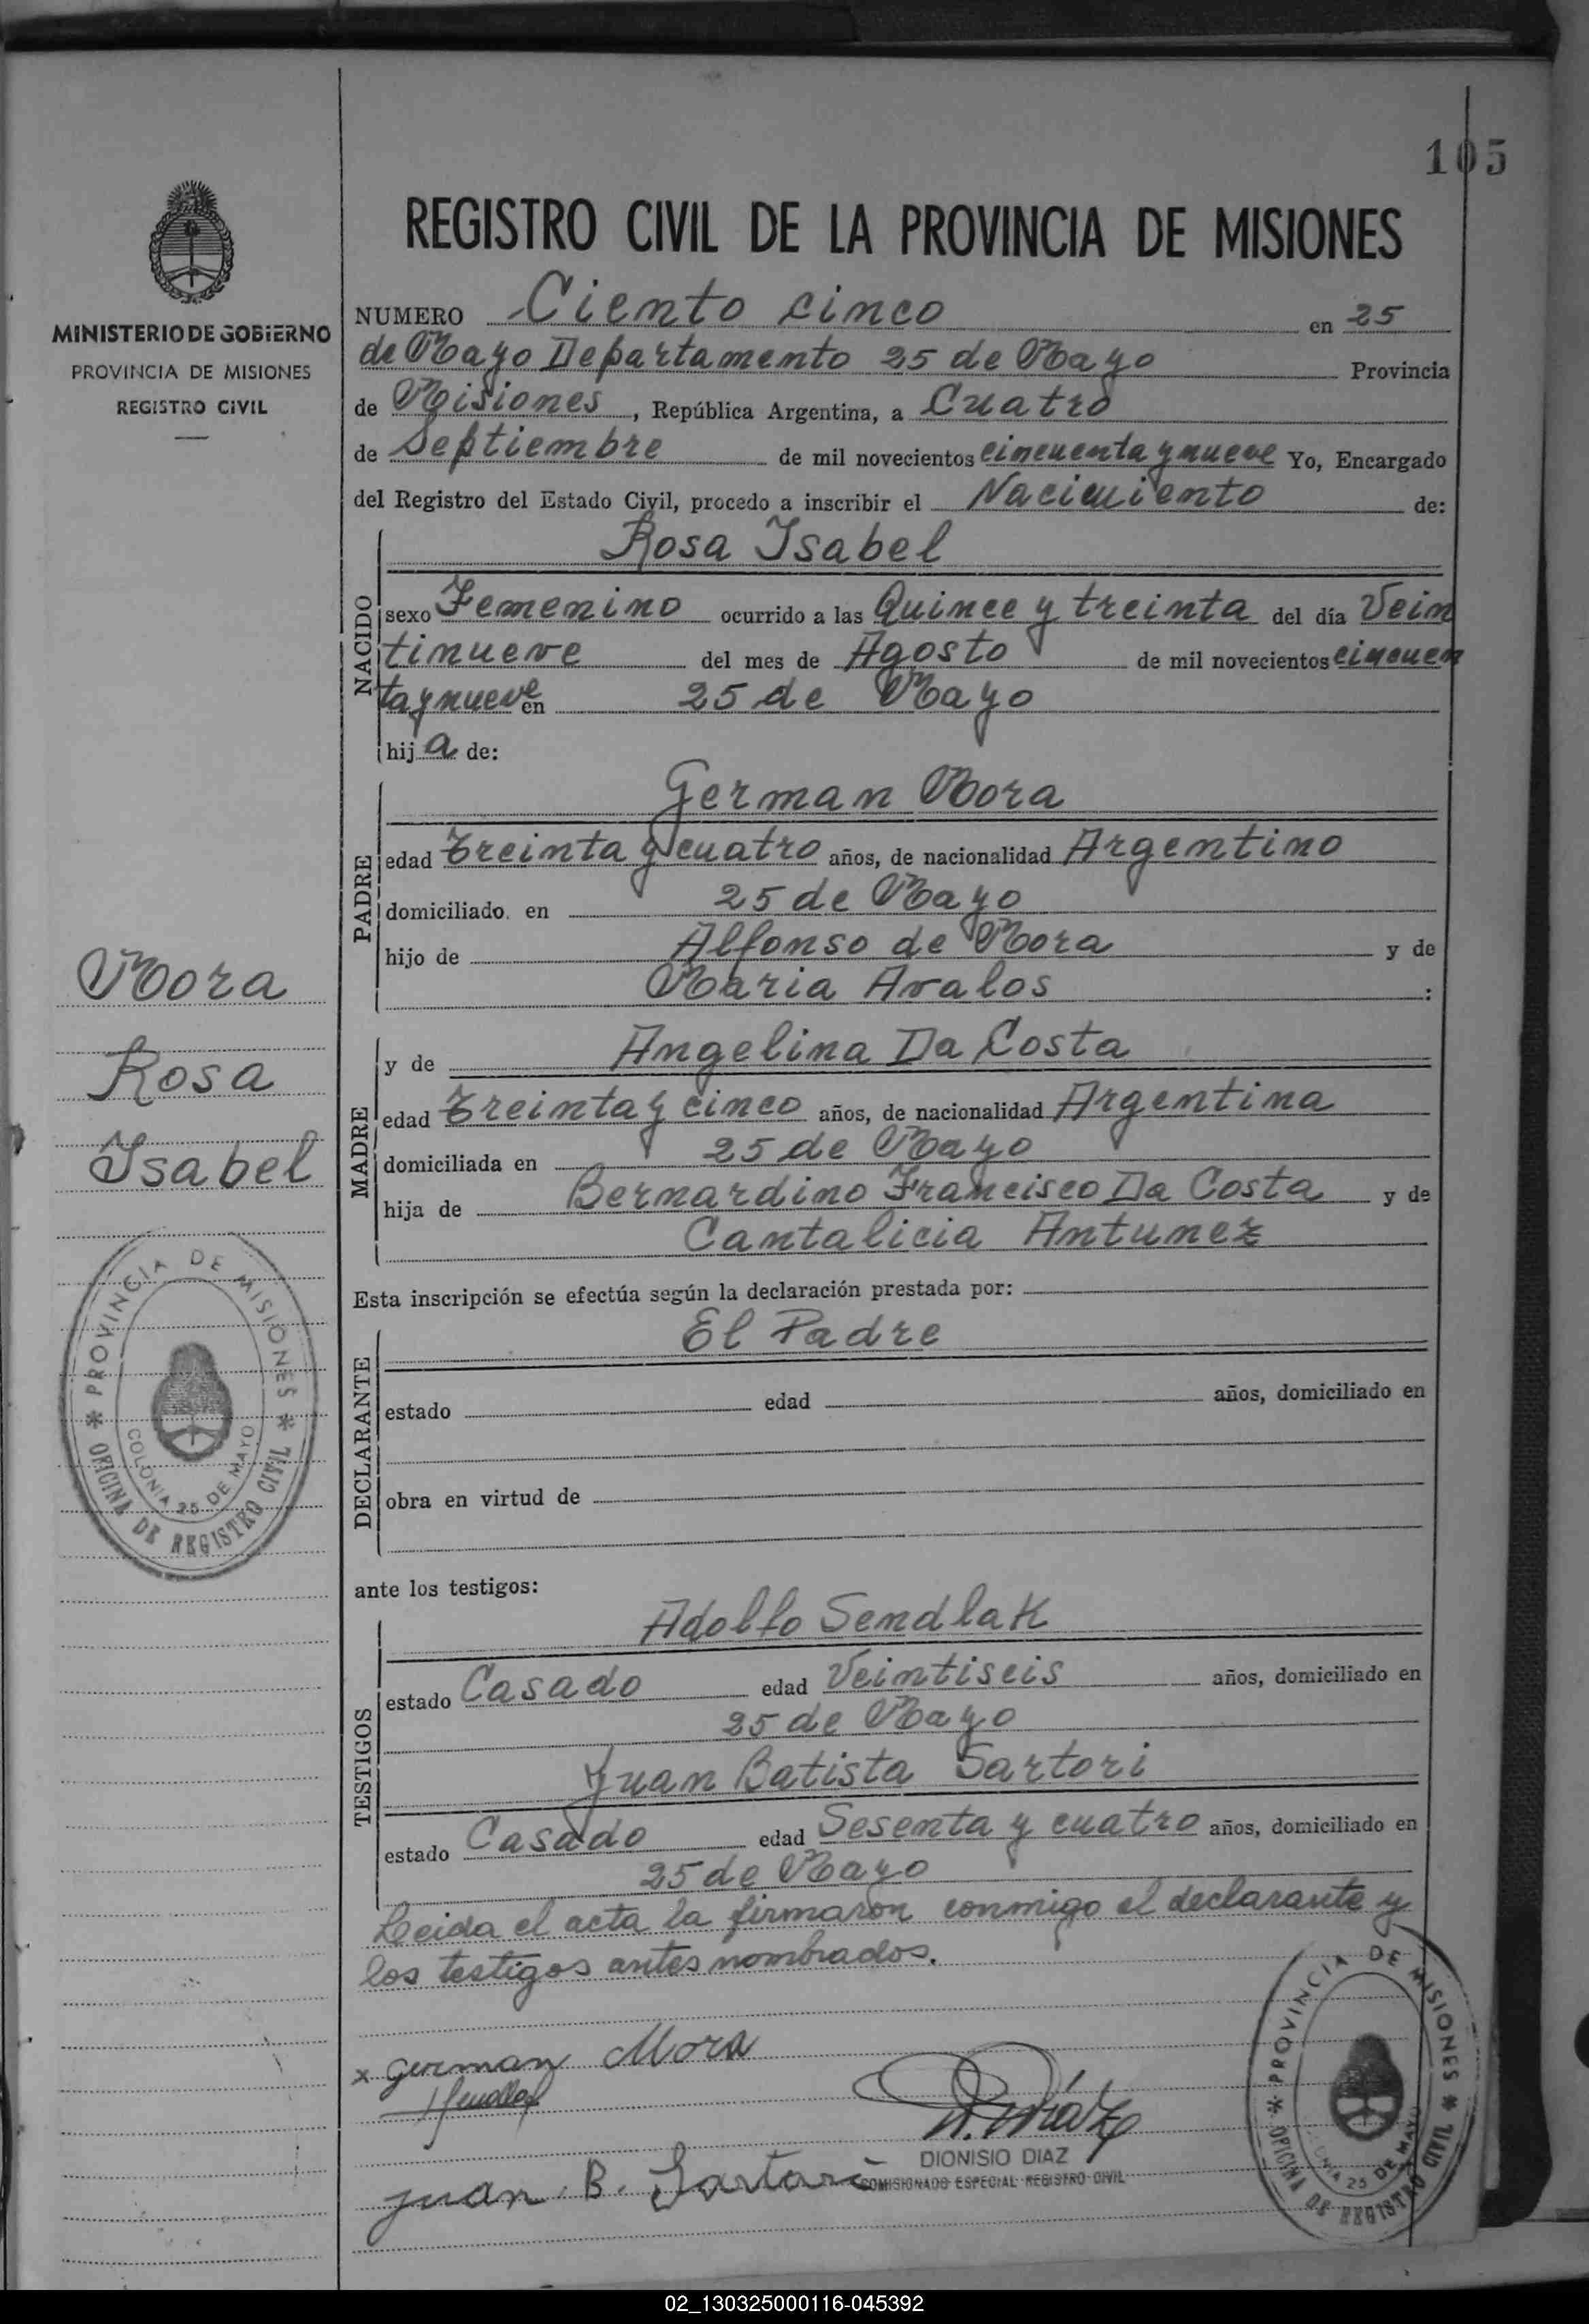 105
MINISTERIO DE GOBIERNO
PROVINCIA DE MISIONES
REGISTRO CIVIL
REGISTRO CIVIL DE LA PROVINCIA DE MISIONES
NUMERO Ciento cinco en 25
de Mayo Departamento 25 de Mayo Provincia
de Misiones, República Argentina, a Cuatro
de Septiembre de mil novecientos cincuenta y nueve Yo, Encargado
del Registro del Estado Civil, procedo a inscribir el Nacimiento de:
NACIDO
Rosa Isabel
sexo Femenino ocurrido a las Quince y treinta del día Vein
tinueve del mes de Agosto de mil novecientos cincuen
ta y nueve en 25 de Mayo
hija de:
PADRE
German Mora
edad Treinta y cuatro años, de nacionalidad Argentino
domiciliado en 25 de Mayo
hijo de Alfonso de Mora y de
Maria Avalos :
MADRE
y de Angelina Da Costa
edad Treinta y cinco años, de nacionalidad Argentina
domiciliada en 25 de Mayo
hija de Bernardino Francisco Da Costa y de
Cantalicia Antunez
Esta inscripción se efectúa según la declaración prestada por:
DECLARANTE
El Padre
estado edad años, domiciliado en
obra en virtud de
ante los testigos:
TESTIGOS
Adolfo Sendlak
estado Casado edad Veintiseis años, domiciliado en
25 de Mayo
Juan Batista Sartori
estado Casado edad Sesenta y cuatro años, domiciliado en
25 de Mayo
Leida el acta la firmaron conmigo el declarante y
los testigos antes nombrados.
x german Mora
D. Diaz
juan B. Sartori
DIONISIO DIAZ
COMISIONADO ESPECIAL REGISTRO CIVIL
Mora
Rosa
Isabel
* PROVINCIA DE MISIONES *
OFICINA DE REGISTRO CIVIL
COLONIA 25 DE MAYO
* PROVINCIA DE MISIONES *
OFICINA DE REGISTRO CIVIL
25 DE MAYO
02_130325000116-045392